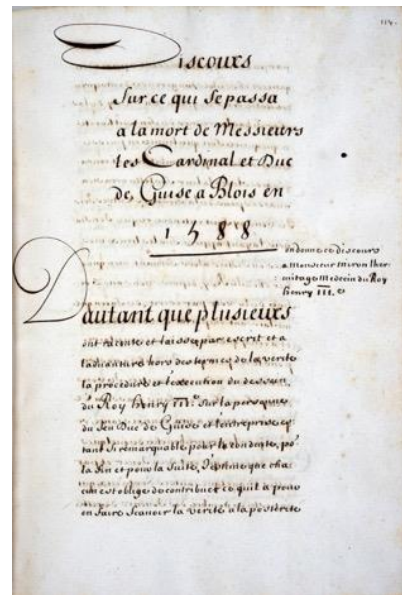 114.
Discours
Sur ce qui Se passa
a la mort de Messieurs
les Cardinal et Duc
de Guise a Blois en
1588
on donne ce discours
a Monsieur miron lher
mitage Medecin du Roy
henry III. e
Dautant que plusieurs
ont raconte et laisse par escrit et a
ladvanture hors des termes de la verite
la procedure et l'execution du dessein
du Roy henry III.e Sur la personne
du feu Duc de Guise et l'entreprise es
tant Si remarquable pour la conduite, po
la fin et pour la Suite, J'estime que cha
cun est oblige de contribuer ce quil a pour
en faire Scavoir la verite a la posterite